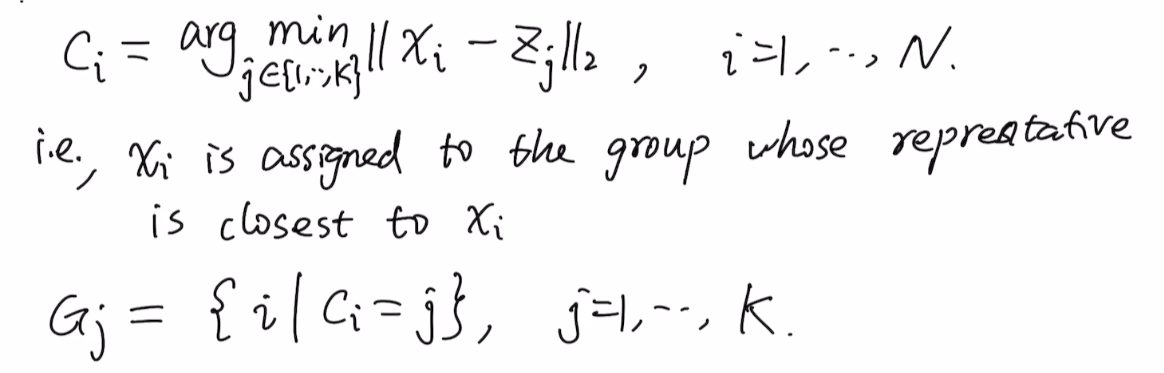 C_i = arg min_{j∈{1,··,K}} ‖x_i − z_j‖_2 , i=1, ··, N.
i.e., x_i is assigned to the group whose represtative
is closest to x_i
G_j = { i | C_i = j}, j=1,··, K.